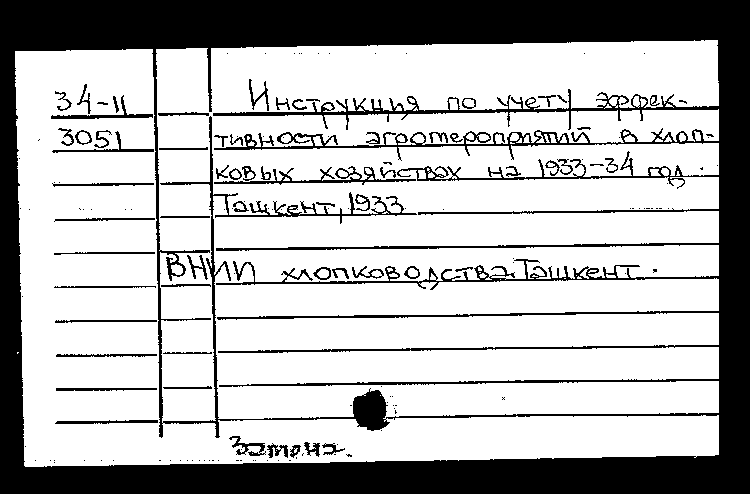 34-11 Инструкция по учету эффек-
3051 тивности агротероприятий в хлоп-
ковых хозяйствах на 1933-34 год.
Ташкент, 1933
ВНИИ хлопководства. Ташкент.